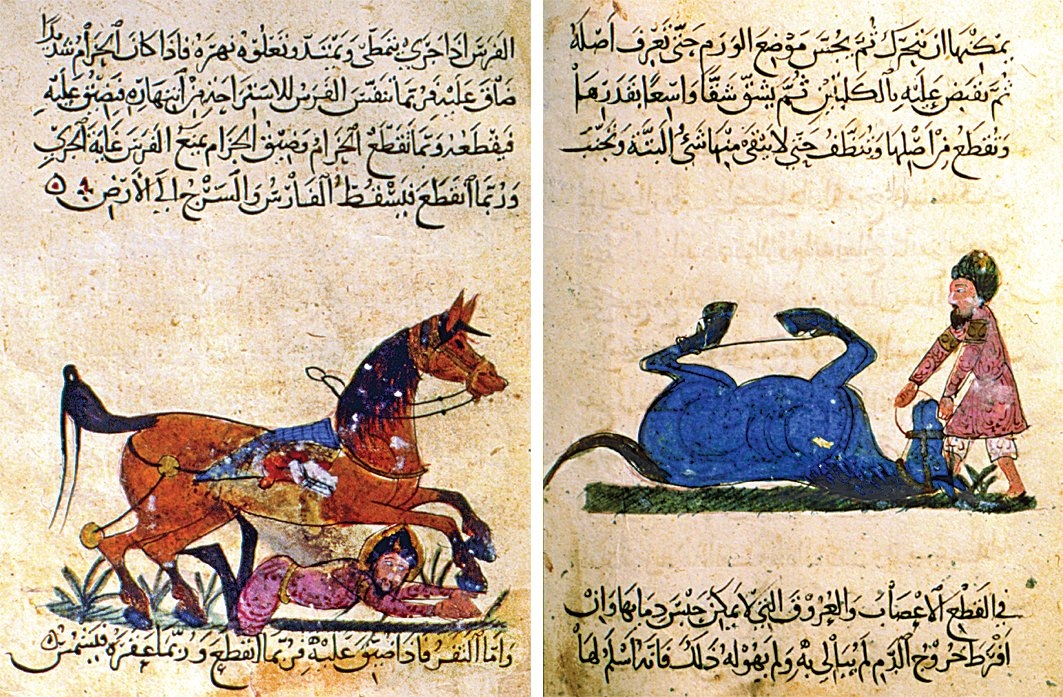 يمكنها ان تتحرك ثم يجس موضع الورم حتى تعرف أصله
ثم تقبض عليه بالكلبتين ثم يشق شقا واسعا بقدرها
وتقطع من اصلها وتنظف حتى لا يبقى منها شئ البتة وتجنب
في القطع الاعصاب والعروق التي لا يمكن حبس دمها وان
افرط خروج الدم لم يبالى به ولم يهوله ذلك فانه اسلم لها
الفرس اذا جرى يتمطى ويمتد وتعلوه نهرة فاذا كان الحزام شديدا
ضاق عليه فربما تنفس الفرس للاستراحة من انبهاره فضيق عليه
فيقطعه وربما تقطع الحزام وضيق الحزام يمنع الفرس غاية الجري
وربما انقطع فيسقط الفارس والسرج الى الارض
واما الثفر فاذا ضيق عليه فربما انقطع وربما عقره